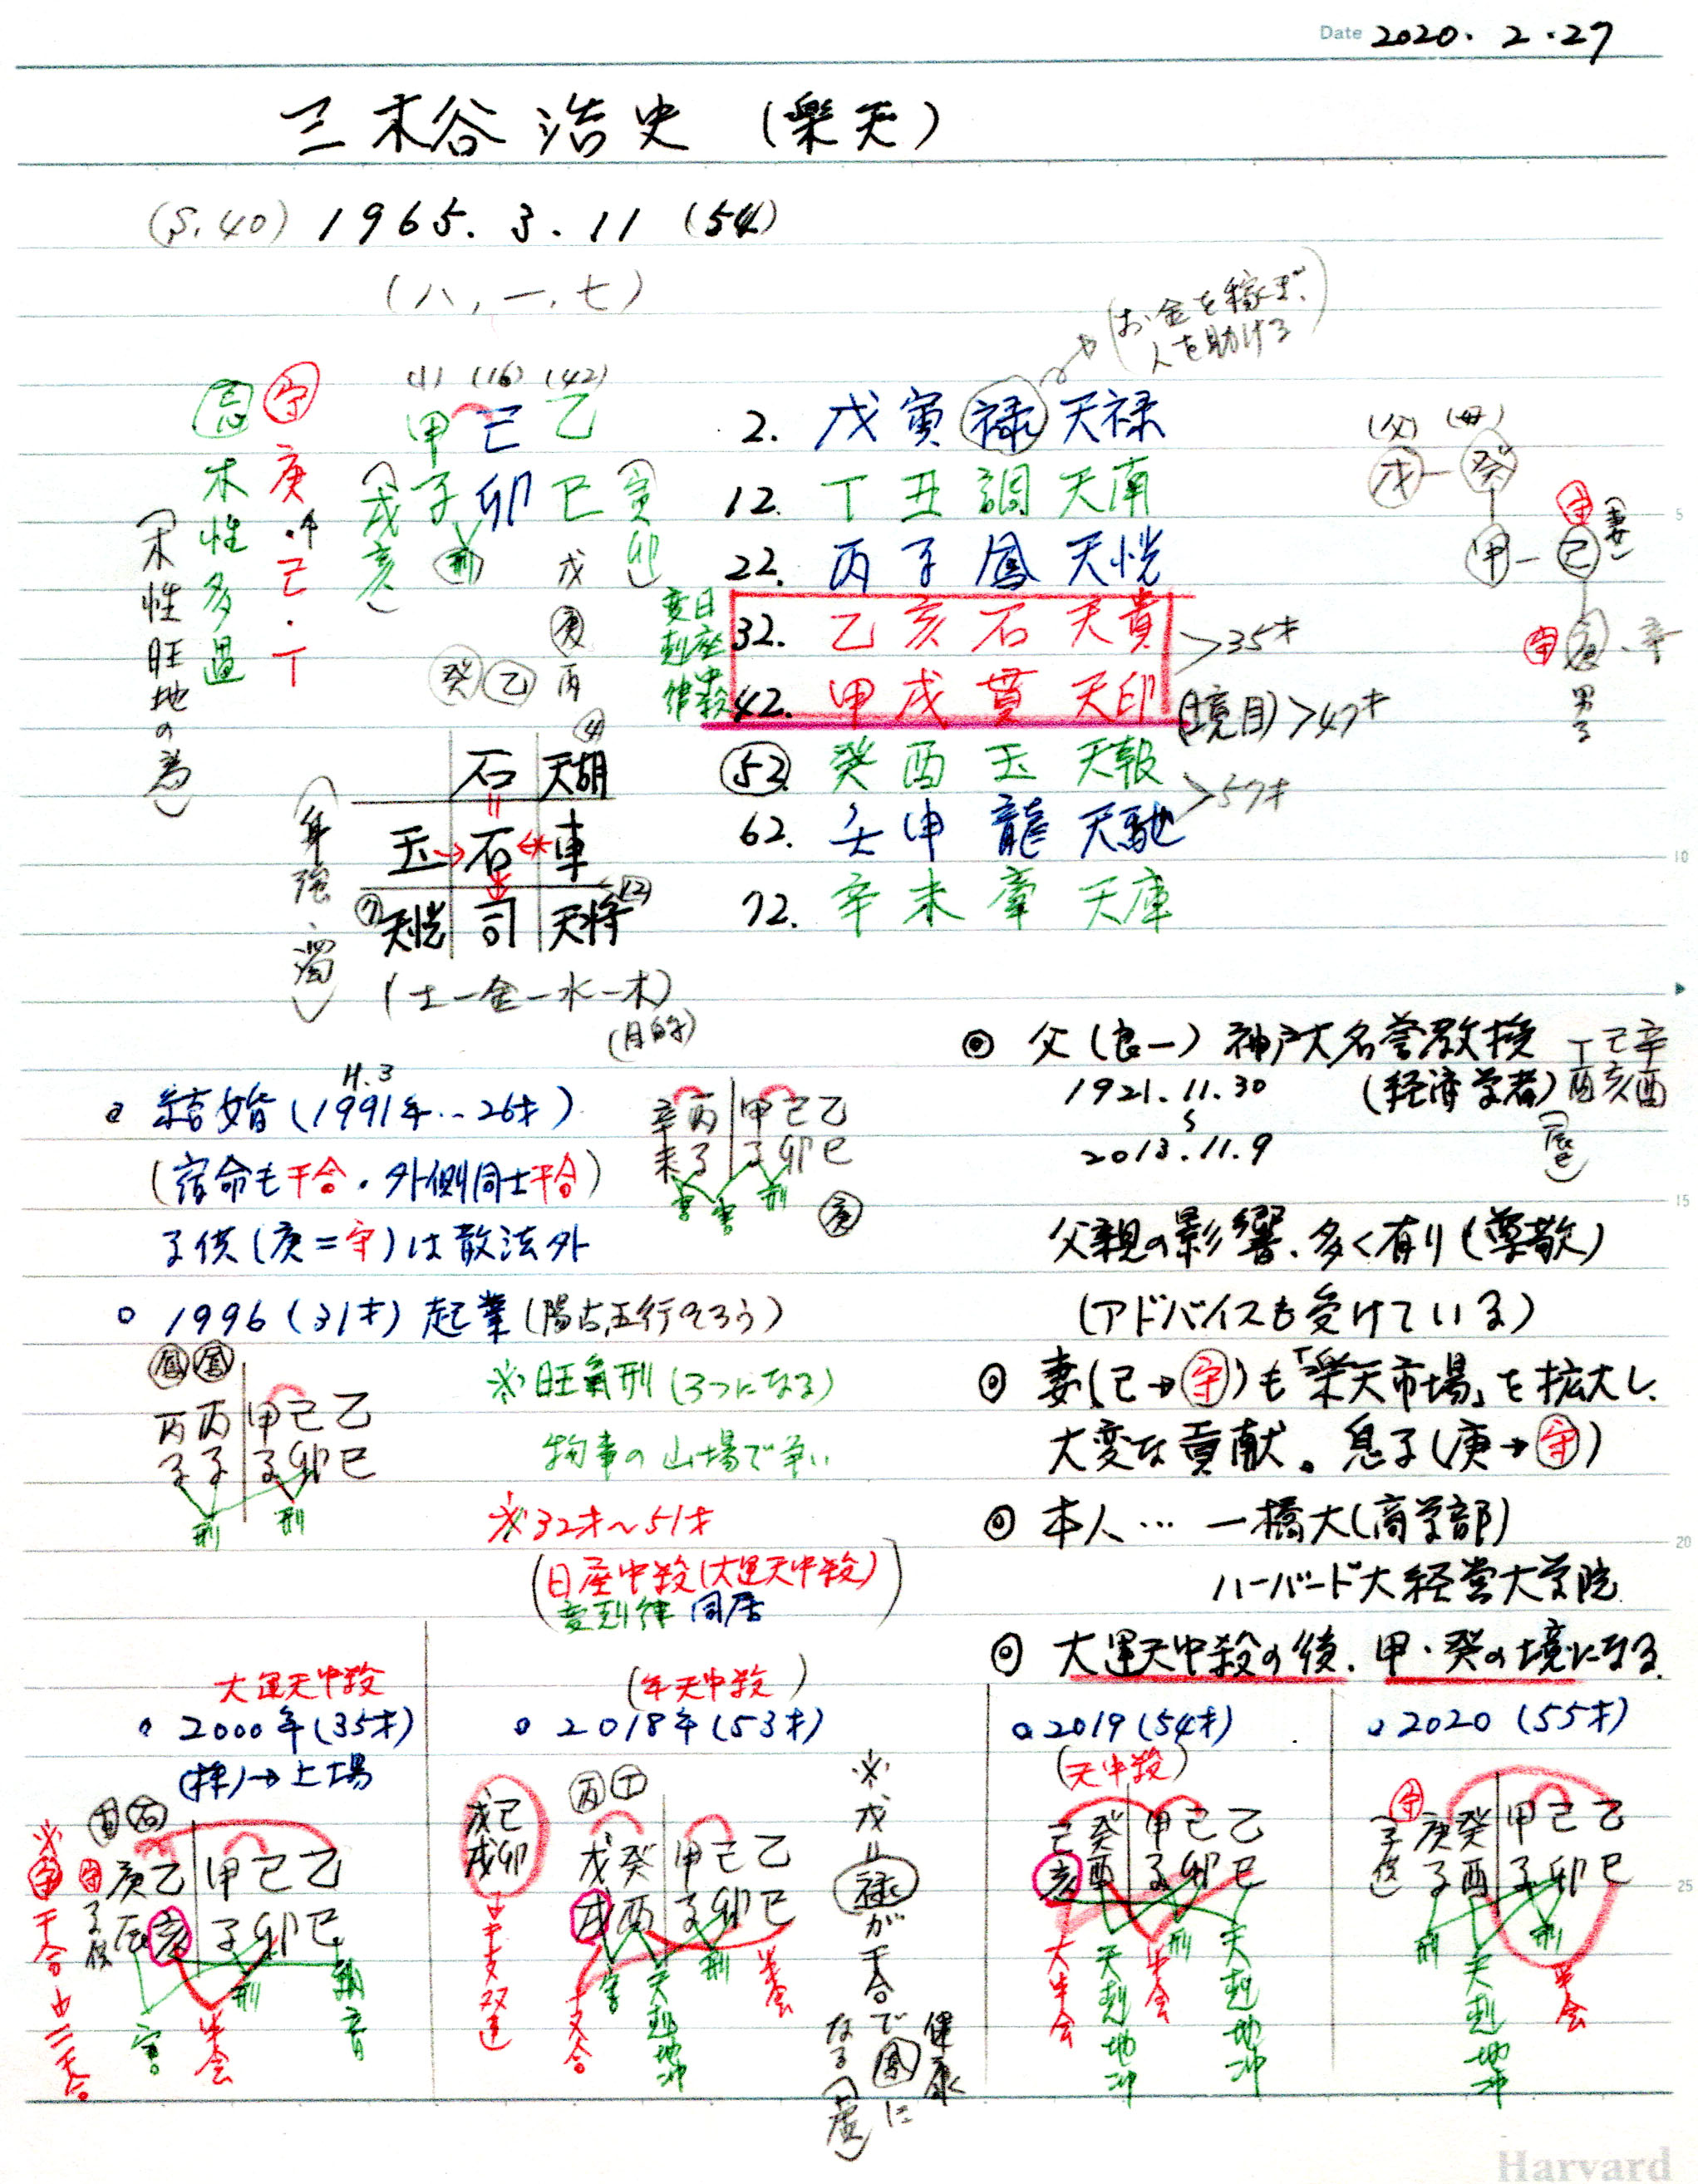 Date 2020. 2. 27
三木谷浩史 (楽天)
(S.40) 1965. 3. 11 (54)
(八, 一, 七)
(お金を稼ぎ、
人を助ける)
(1) (16) (42)
甲 己 乙
子 卯 巳
(戌亥) 刑 戊 (寅卯)
庚
癸 乙 丙
守 庚・己・丁
忌 木性多過
(木性旺地の為)
(身強・濁)
石 天胡 4
玉 石 車
7 天恍 司 天将 12
(土一金一水一木)
(目的)
2. 戊寅 禄 天禄
12. 丁丑 調 天南
22. 丙子 鳳 天恍
32. 乙亥 石 天貴 >35才
42. 甲戌 貫 天印 (境目)>47才
52. 癸酉 玉 天報 >57才
62. 壬申 龍 天馳
72. 辛未 牽 天庫
日座中殺
変剋律
(父) (母)
戊一癸
甲一己 守 (妻)
守 庚、辛
男子
結婚 (1991年…26才)
H.3
(宿命も干合・外側同士干合)
子供(庚=守)は散法外
辛丙 甲己乙
未子 子卯巳
害 害 刑 庚
1996 (31才) 起業 (陽占,五行そろう)
鳳 鳳
丙丙 甲己乙
子子 子卯巳
刑 刑
※旺気刑 (3つになる)
物事の山場で争い
※32才〜51才
(日座中殺(大運天中殺)
変剋律 同居)
◎ 父 (良一) 神戸大名誉教授
(経済学者)
1921. 11. 30
2013. 11. 9
丁己辛
酉亥酉
父親の影響、多く有り (尊敬)
(アドバイスも受けている)
◎ 妻(己→守)も「楽天市場」を拡大し、
大変な貢献。息子(庚→守)
◎ 本人… 一橋大(商学部)
ハーバード大経営大学院
◎ 大運天中殺の後、甲・癸の境になる。
大運天中殺
2000年(35才)
(株)→上場
石
庚乙 甲己乙
辰亥 子卯巳
守 子供
害 半会 刑 納音
※守 干合
(年天中殺)
2018年 (53才)
戊己
戌卯
干支双連
丙 丁
戊癸 甲己乙
戌酉 子卯巳
支合 害 天剋地冲 刑 半会
※戊=禄が干合で鳳になる
健康
2019 (54才)
(天中殺)
己癸 甲己乙
亥酉 子卯巳
大半会 天剋地冲 半会 刑 天剋地冲
2020 (55才)
守 子供
庚癸 甲己乙
子酉 子卯巳
刑 天剋地冲 刑 半会
Harvard